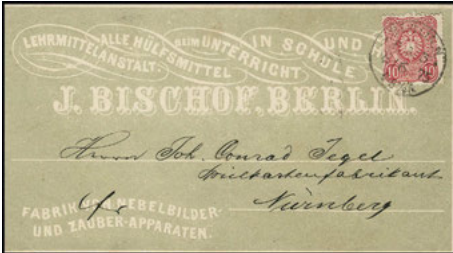 LEHRMITTELANSTALT ALLE HÜLFSMITTEL BEIM UNTERRICHT IN SCHULE UND
J. BISCHOF, BERLIN.
Herrn Joh. Conrad Jegel
Spielkartenfabrikant
Nürnberg
FABRIK VON NEBELBILDER-
UND ZAUBER-APPARATEN.
10